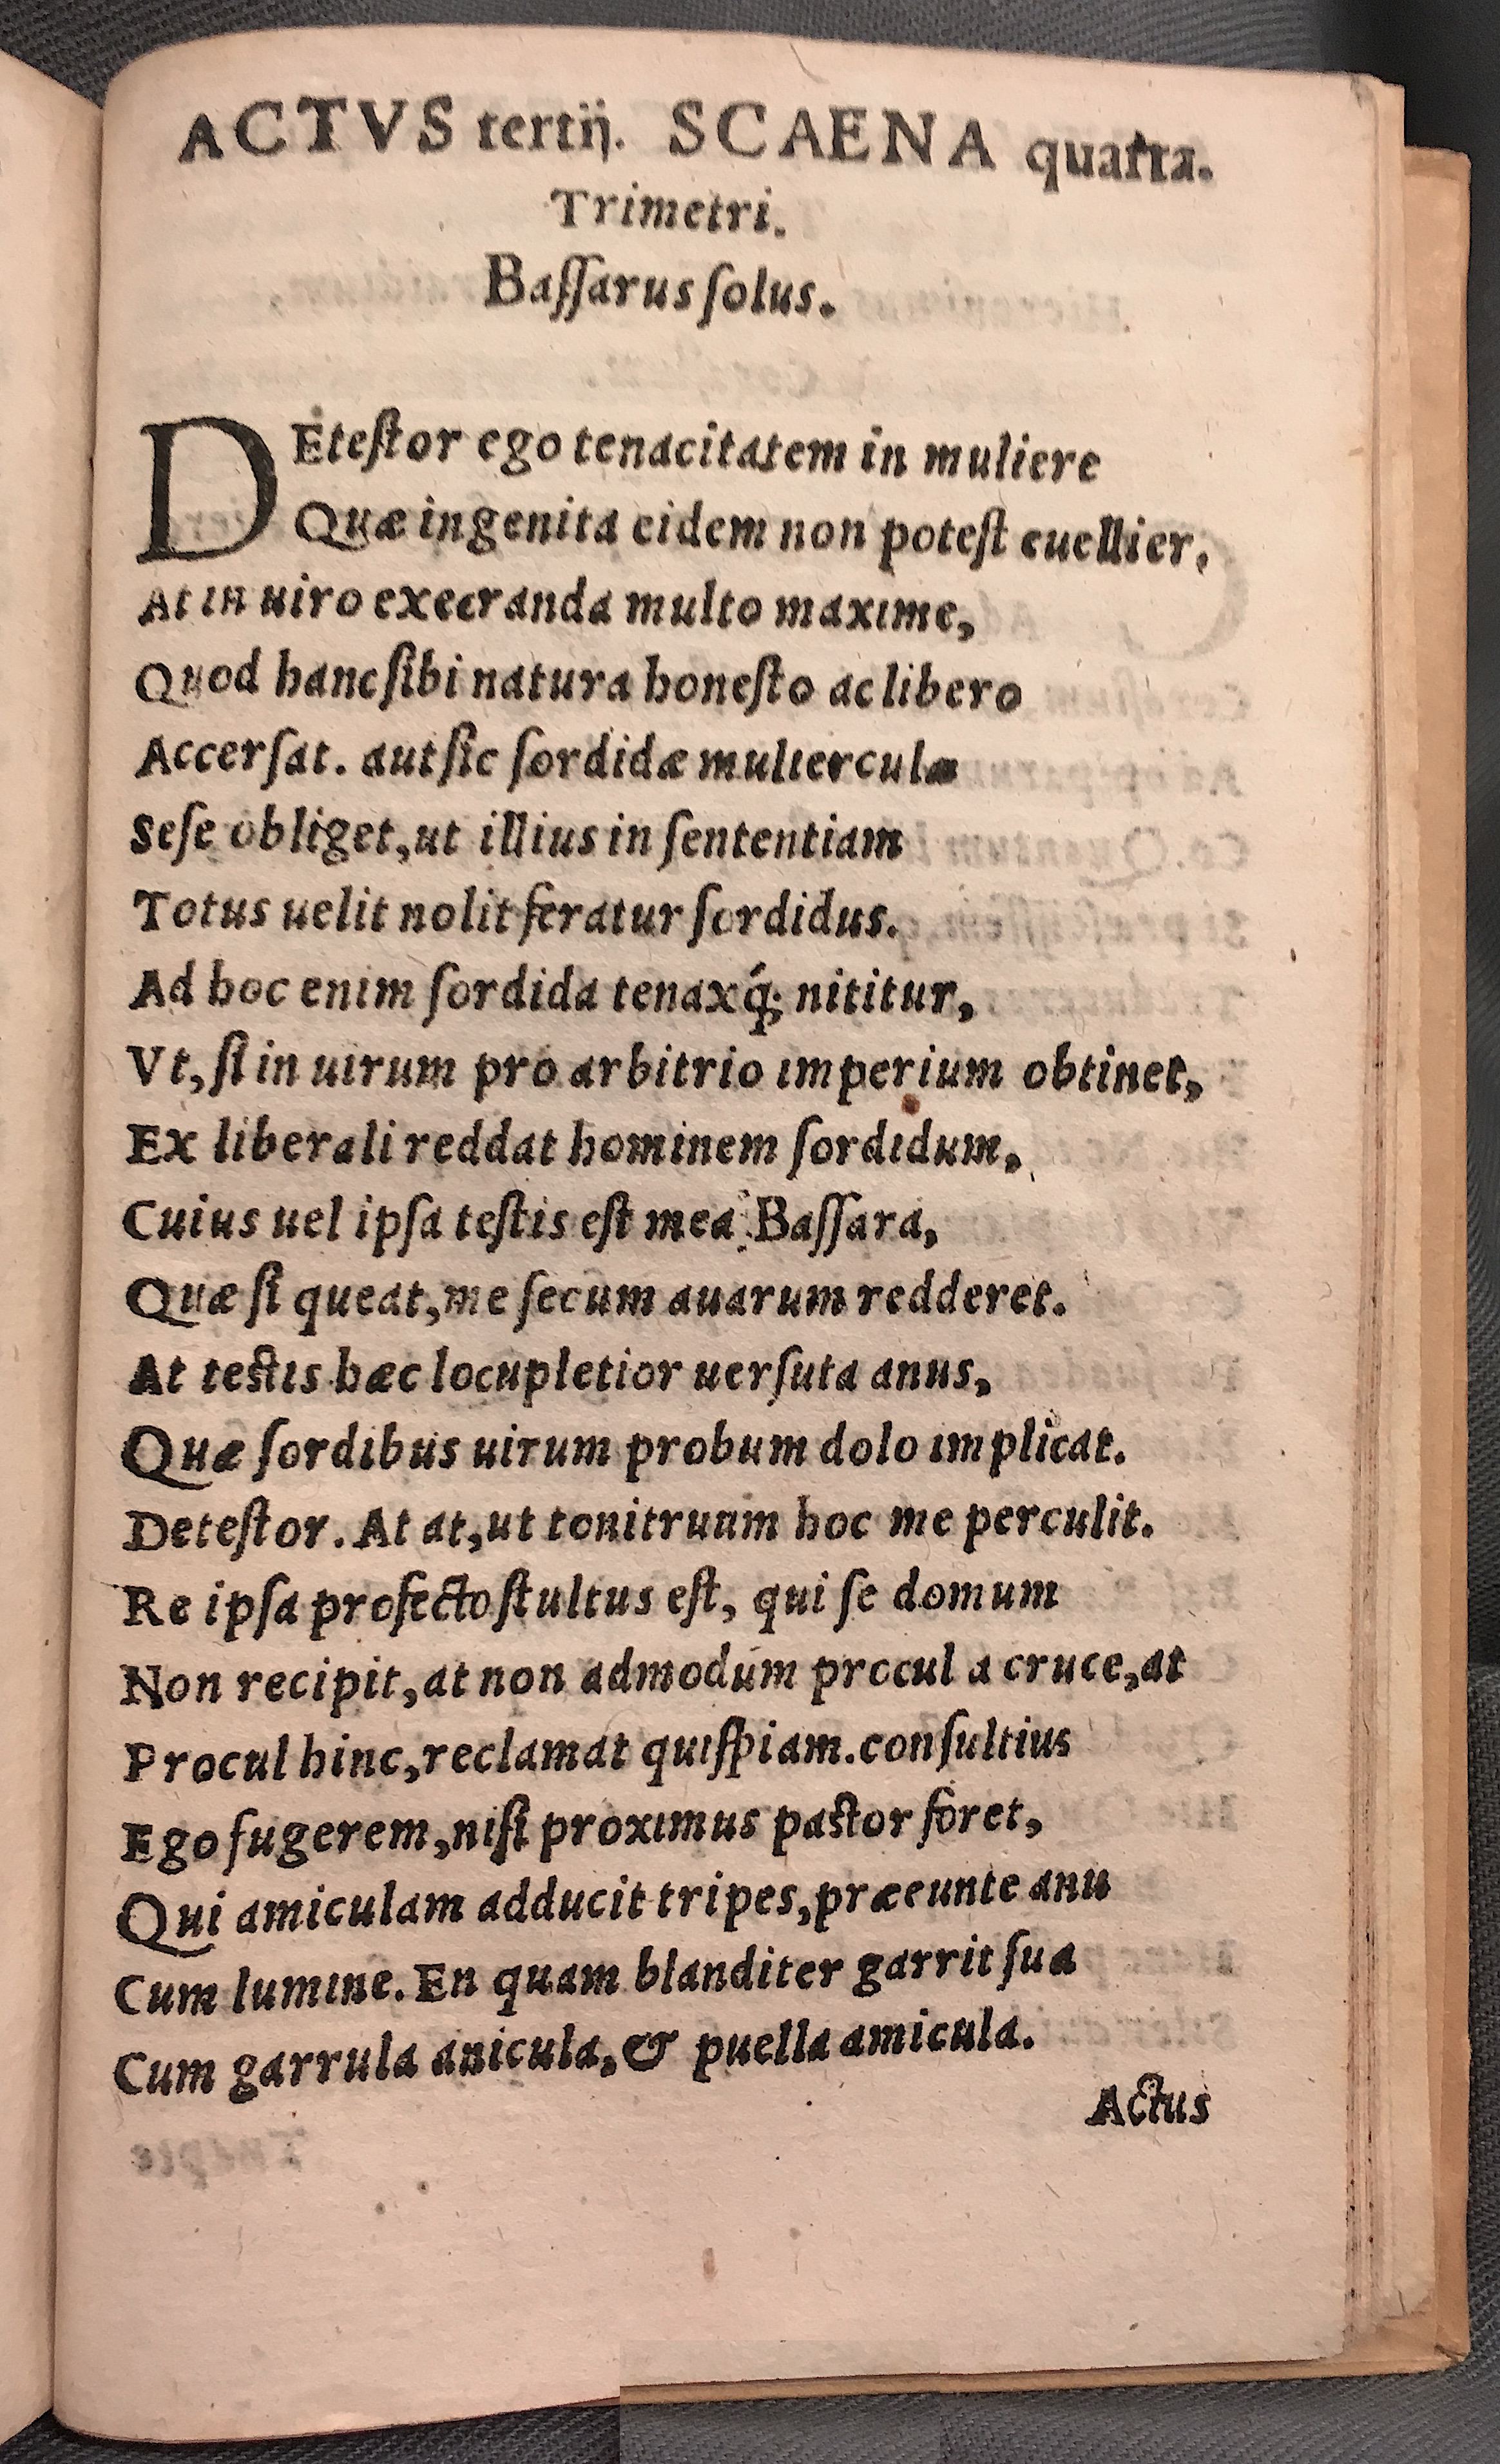 ACTVS tertij. SCAENA quarta.
Trimetri.
Baſſarus ſolus.
DEteſtor ego tenacitatem in muliere
Quæ ingenita eidem non poteſt euellier,
At in uiro execranda multo maxime,
Quod hanc ſibi natura honeſto ac libero
Accerſat. aut ſic ſordidæ mulierculæ
Seſe obliget, ut illius in ſententiam
Totus uelit nolit feratur ſordidus.
Ad hoc enim ſordida tenaxq́; nititur,
Vt, ſi in uirum pro arbitrio imperium obtinet,
Ex liberali reddat hominem ſordidum,
Cuius uel ipſa teſtis eſt mea Baſſara,
Quæ ſi queat, me ſecum auarum redderet.
At testis hæc locupletior uerſuta anus,
Quæ ſordibus uirum probum dolo implicat.
Deteſtor. At at, ut tonitruum hoc me perculit.
Re ipſa profecto ſtultus eſt, qui ſe domum
Non recipit, at non admodum procul a cruce, at
Procul hinc, reclamat quiſpiam. conſultius
Ego fugerem, niſi proximus pastor foret,
Qui amiculam adducit tripes, præeunte anu
Cum lumine. En quam blanditer garrit ſua
Cum garrula anicula, & puella amicula.
Actus